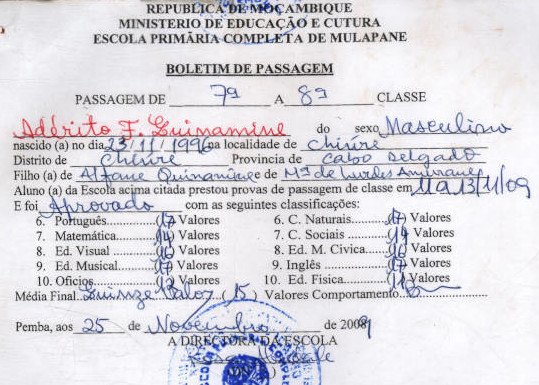 REPUBLICA DE MOÇAMBIQUE
MINISTERIO DE EDUCAÇÃO E CUTURA
ESCOLA PRIMÃRIA COMPLETA DE MULAPANE
BOLETIM DE PASSAGEM
PASSAGEM DE 7ª A 8ª CLASSE
Adérito F. Guinamine do sexo Masculino
nascido (a) no dia 23/11/1996 na localidade de Chiúre
Distrito de Chiúre Provincia de Cabo Delgado
Filho (a) de Alfane Quinamique e de Mª de Lurdes Amurane
Aluno (a) da Escola acima citada prestou provas de passagem de classe em 11 a 13/11/09
E foi Aprovado com as seguintes classificações:
6. Português (17) Valores 6. C. Naturais (17) Valores
7. Matemática (14) Valores 7. C. Sociais (14) Valores
8. Ed. Visual (16) Valores 8. Ed. M. Civica (16) Valores
9. Ed. Musical (17) Valores 9. Inglês (17) Valores
10. Oficios Valores 10. Ed. Fisica Valores
Média Final (15) Valores Comportamento B
Pemba, aos 25 de Novembro de 2009
A DIRECTORA DA ESCOLA